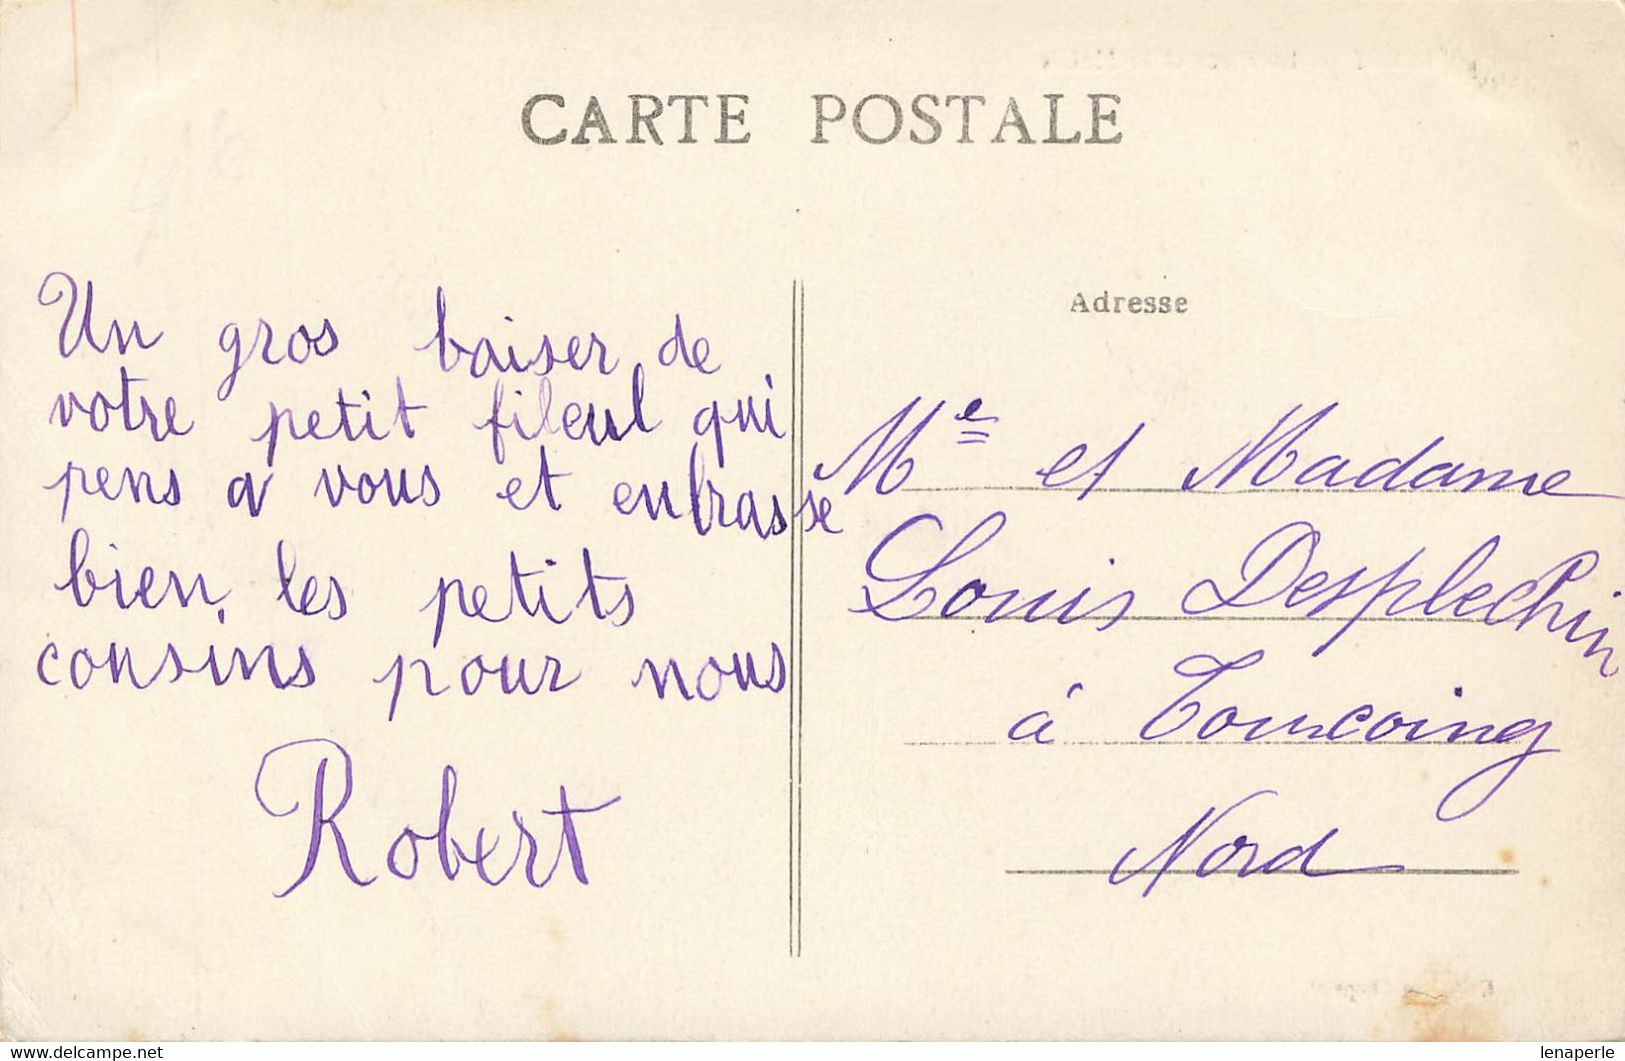 CARTE POSTALE
Un gros baiser de
votre petit fileul qui
pens a vous et enbrasse
bien les petits
cousins pour nous
Robert
Adresse
Mr et Madame
Louis Desplechin
à Tourcoing
Nord
www.delcampe.net
lenaperle